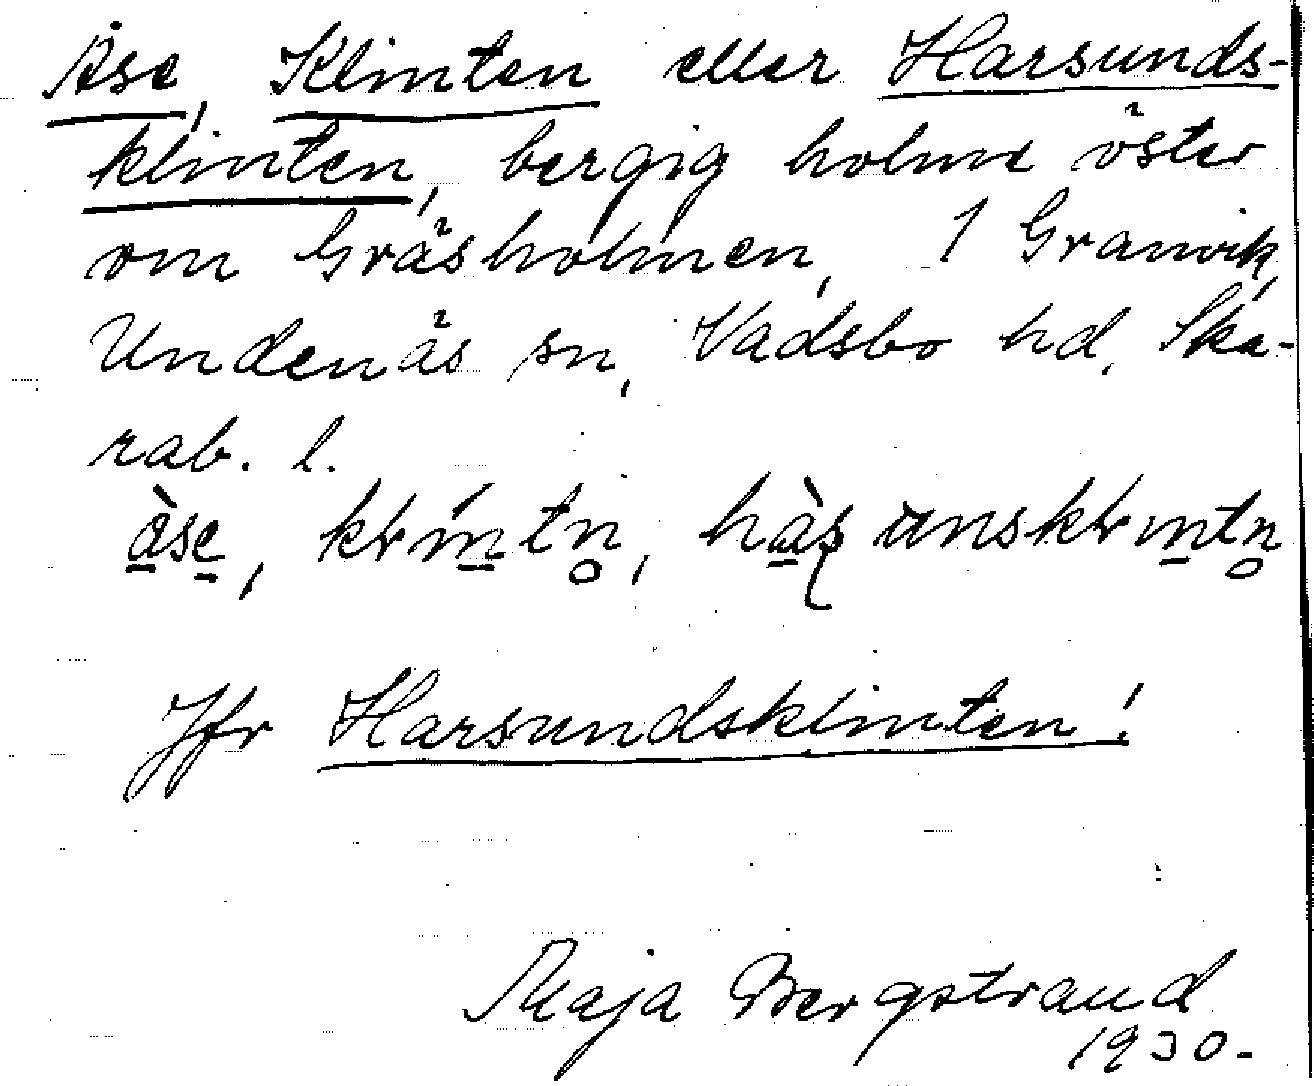 Åse, Klinten eller Harsunds-
klinten, bergig holme öster
om Gräsholmen, 1 Granvik,
Undenäs sn, Vadsbo hd, Ska-
rab. l.
àse, klíntn, hàs unsklintn
Jfr Harsundsklinten!
Maja Bergstrand
1930.